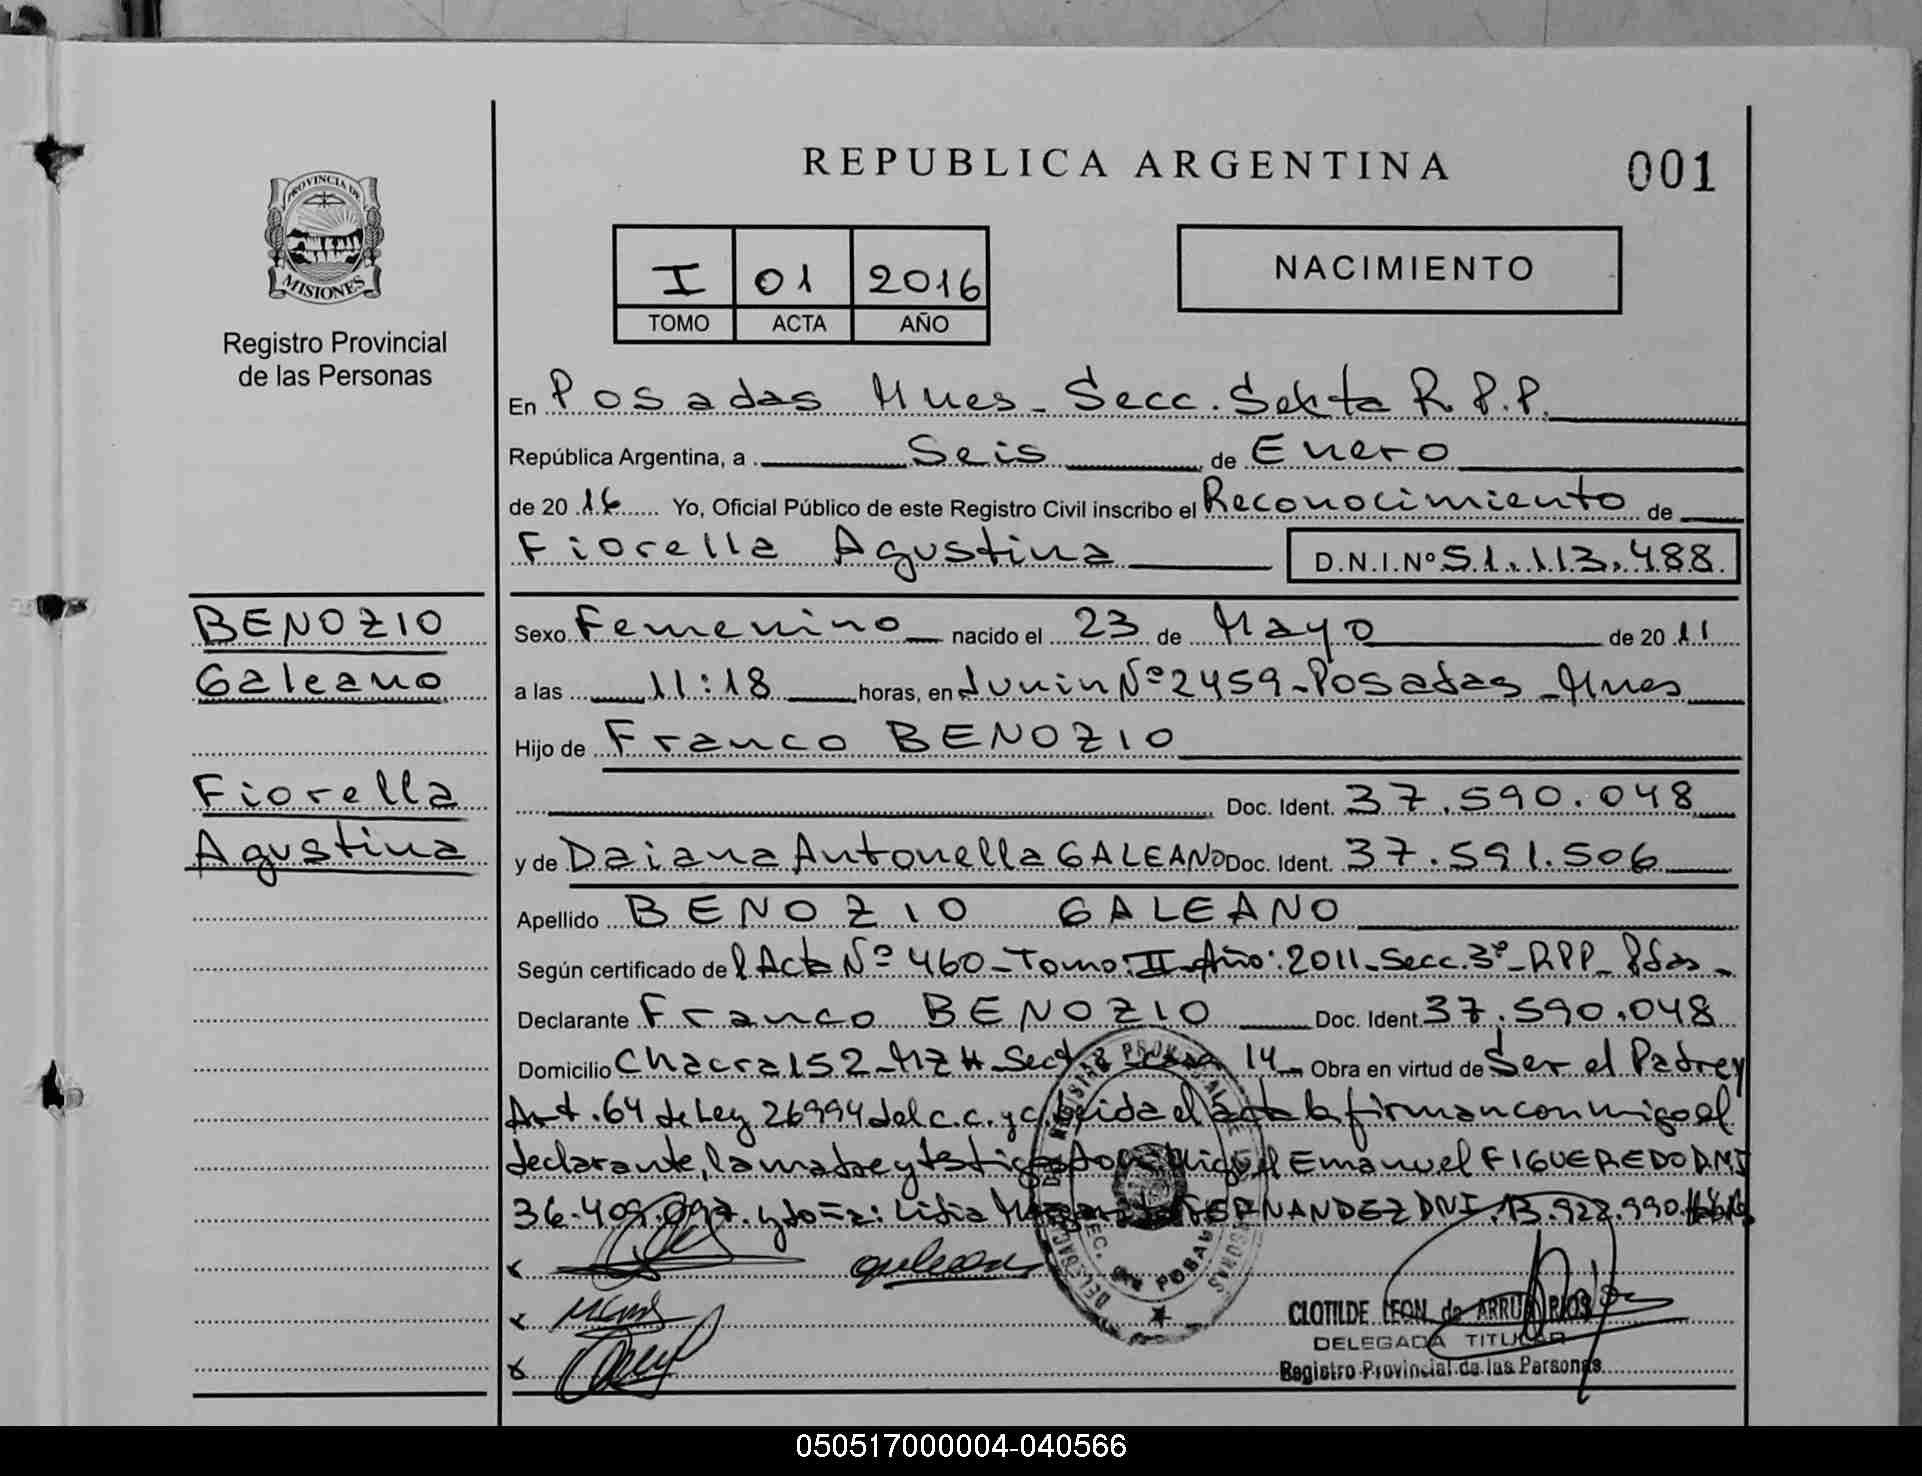 REPUBLICA ARGENTINA
001
PROVINCIA DE
MISIONES
Registro Provincial
de las Personas
I 01 2016
TOMO ACTA AÑO
NACIMIENTO
En Posadas Mnes - Secc. Sexta R.P.P.
República Argentina, a Seis de Enero
de 2016 Yo, Oficial Público de este Registro Civil inscribo el Reconocimiento de
Fiorella Agustina D.N.I.Nº 51.113.488
BENOZIO
Galeano
Fiorella
Agustina
Sexo Femenino nacido el 23 de Mayo de 2011
a las 11:18 horas, en Junin Nº 2459 - Posadas - Mnes
Hijo de Franco BENOZIO
Doc. Ident. 37.590.048
y de Daiana Antonella GALEANO Doc. Ident. 37.591.506
Apellido BENOZIO GALEANO
Según certificado del Acta Nº 460 - Tomo: II - Año: 2011 - Secc. 3º - RPP - Pdas -
Declarante Franco BENOZIO Doc. Ident. 37.590.048
Domicilio Chacra 152 - MZ H - Sect 8 - casa 14 - Obra en virtud de Ser el Padre y
Art. 64 de Ley 26994 del c.c. y c. leida el acta la firman conmigo el
declarante, la madre y testigos Don Miguel Emanuel FIGUEREDO DNI
36.409.097. y doña: Lidia FERNANDEZ DNI. 13.922.990.
CLOTILDE LEON de ARRUA RIOS
DELEGADA TITULAR
Registro Provincial de las Personas
050517000004-040566